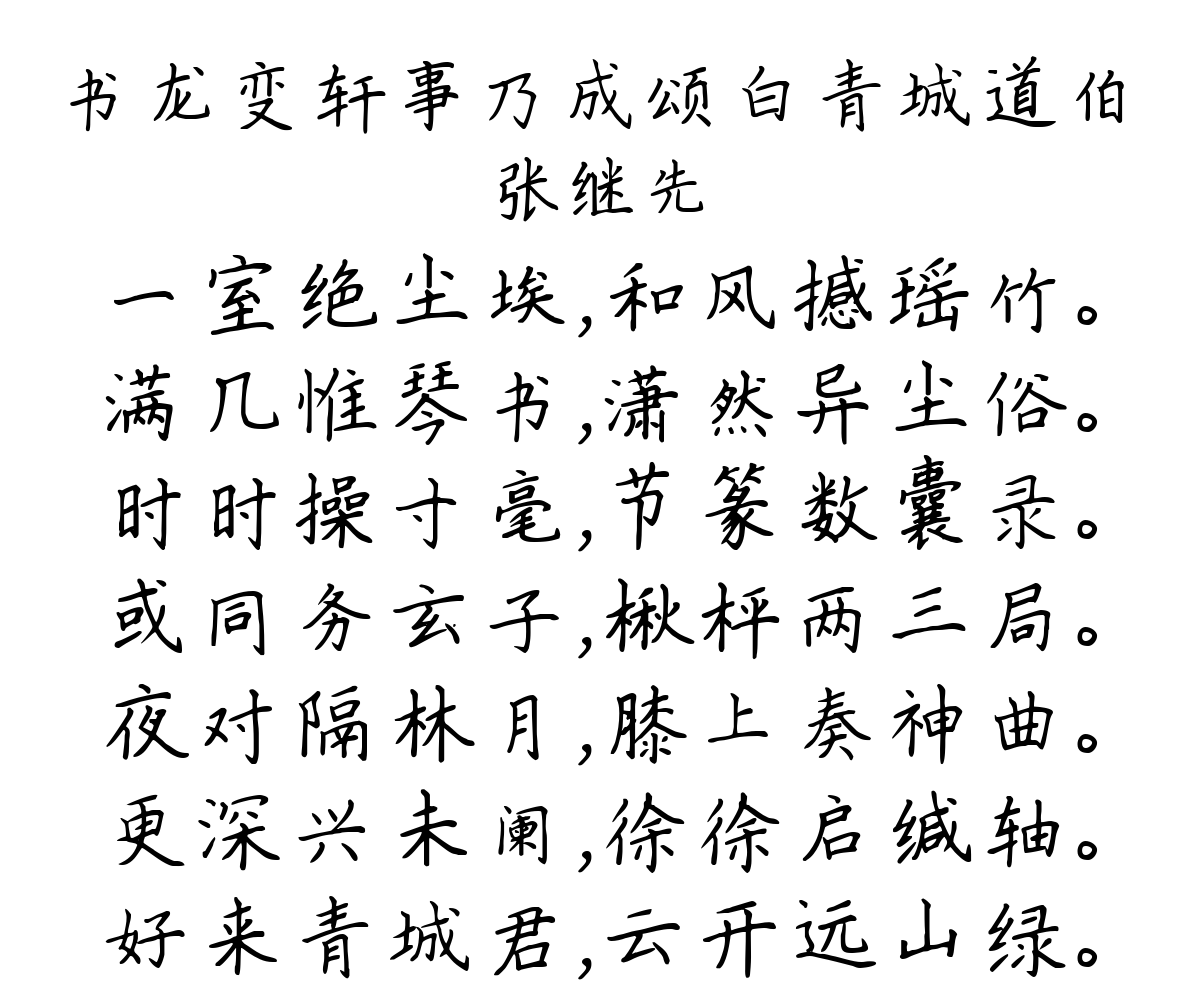 书龙变轩事乃成颂白青城道伯
张继先
一室绝尘埃,和风撼瑶竹。
满几惟琴书,潇然异尘俗。
时时操寸毫,节篆数囊录。
或同务玄子,楸枰两三局。
夜对隔林月,膝上奏神曲。
更深兴未阑,徐徐启缄轴。
好来青城君,云开远山绿。